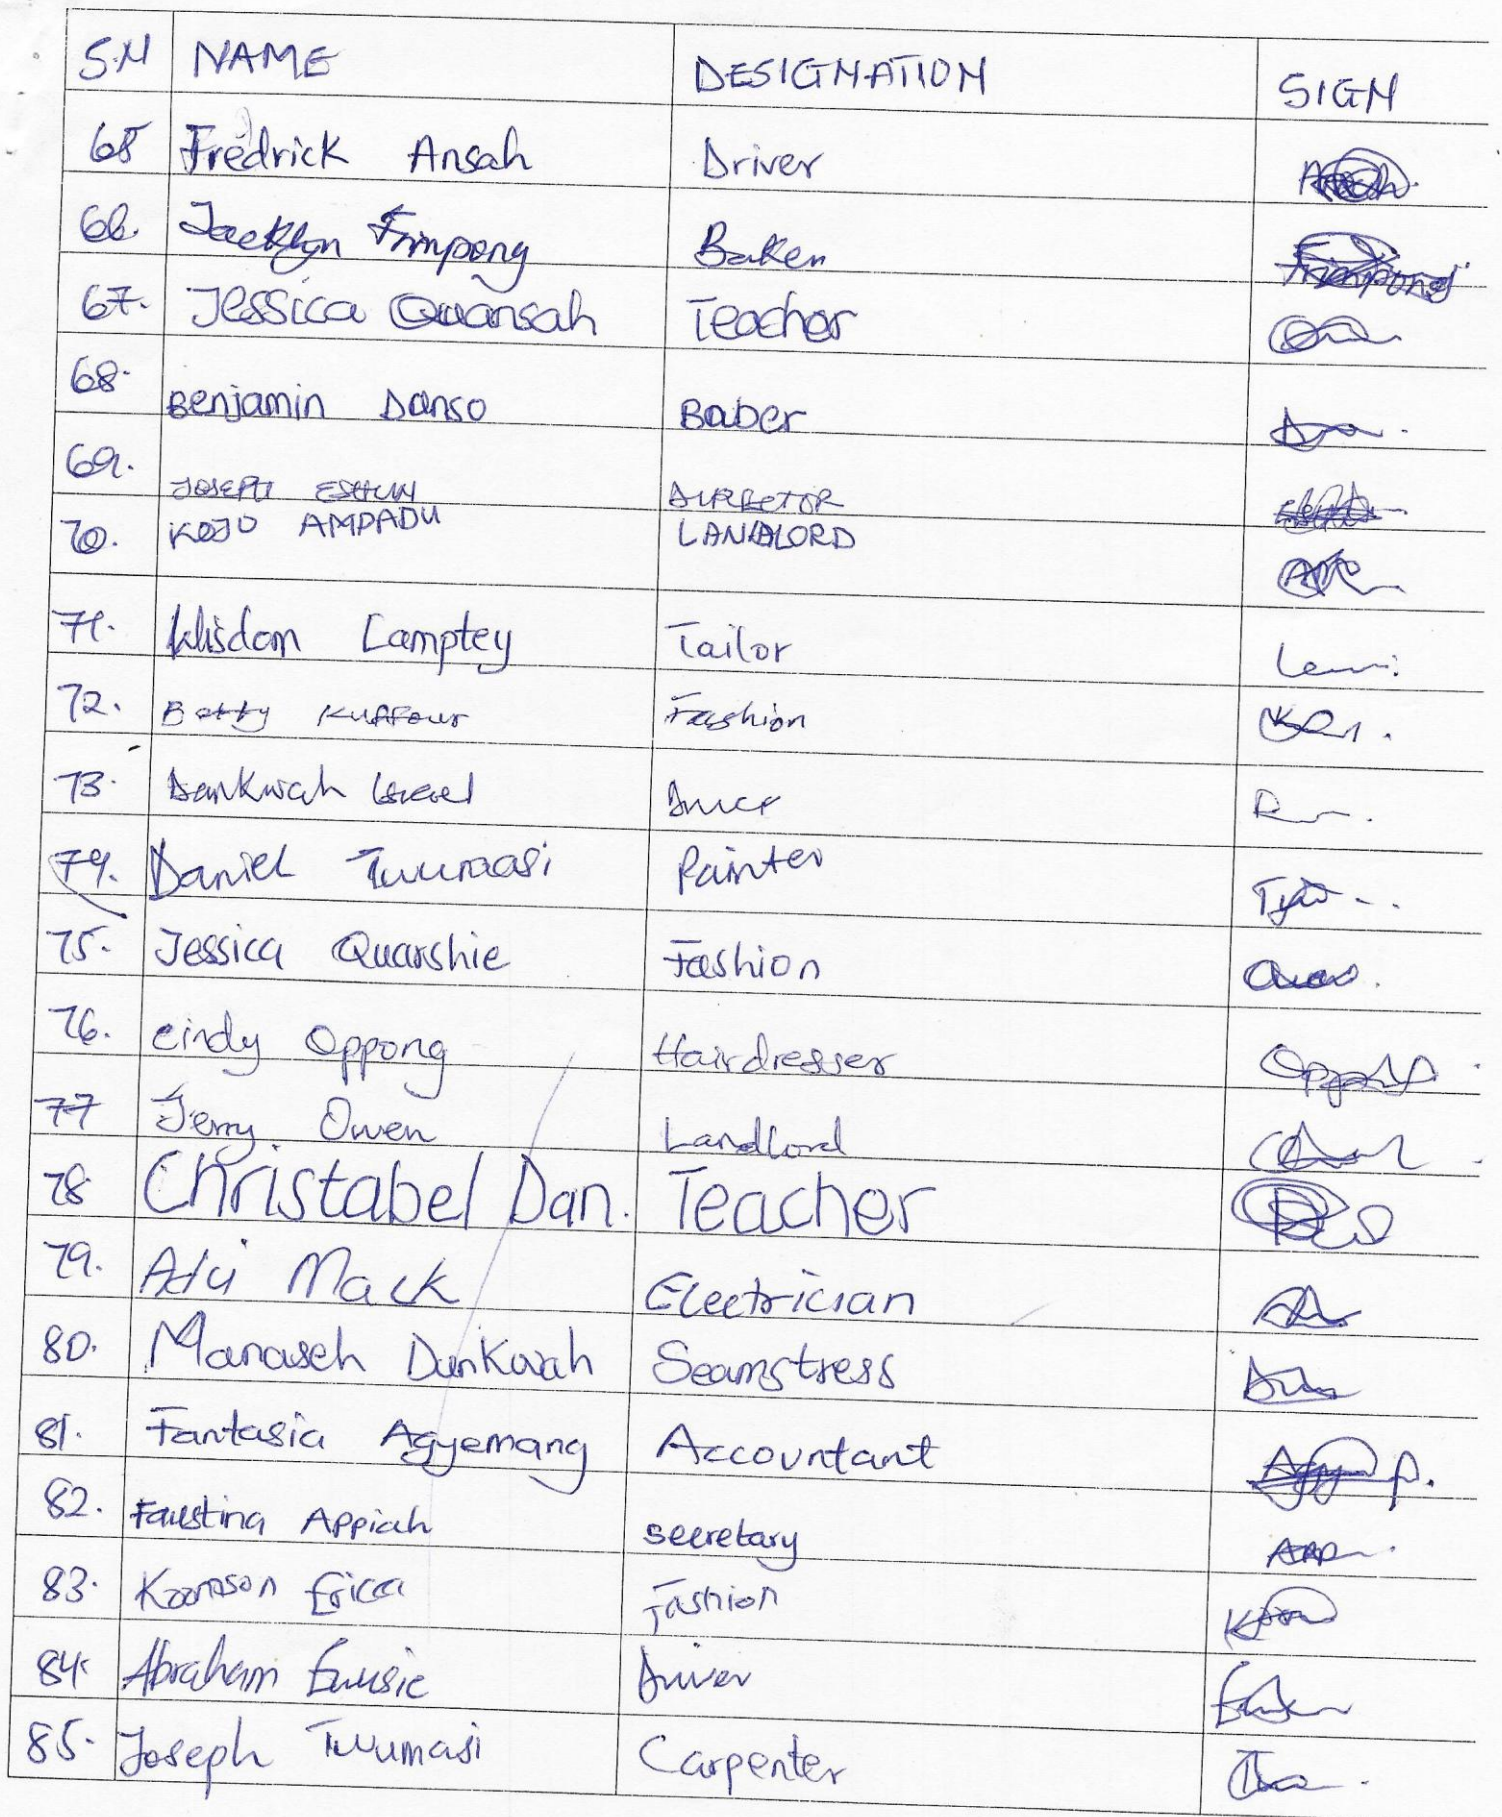 S.N NAME DESIGNATION SIGN
65 Fredrick Ansah Driver
66. Jacklyn Frimpong Baker Frimpong
67. Jessica Quansah Teacher
68. Benjamin Danso Baber
69. JOSEPH ESHUN DIRECTOR
70. KOJO AMPADU LANDLORD
71. Wisdom Lamptey Tailor
72. Betty Kuffour Fashion
73. Dankwah Israel
74. Daniel Twumasi Painter
75. Jessica Quarshie Fashion
76. Cindy Oppong Hairdresser
77 Jerry Owen Landlord
78 Christabel Dan. Teacher
79. Mack Electrician
80. Manaseh Dankwah Seamstress
81. Fantasia Agyemang Accountant
82. Faustina Appiah Secretary
83. Koomson Erica Fashion
84 Abraham Ewusie Driver
85. Joseph Twumasi Carpenter